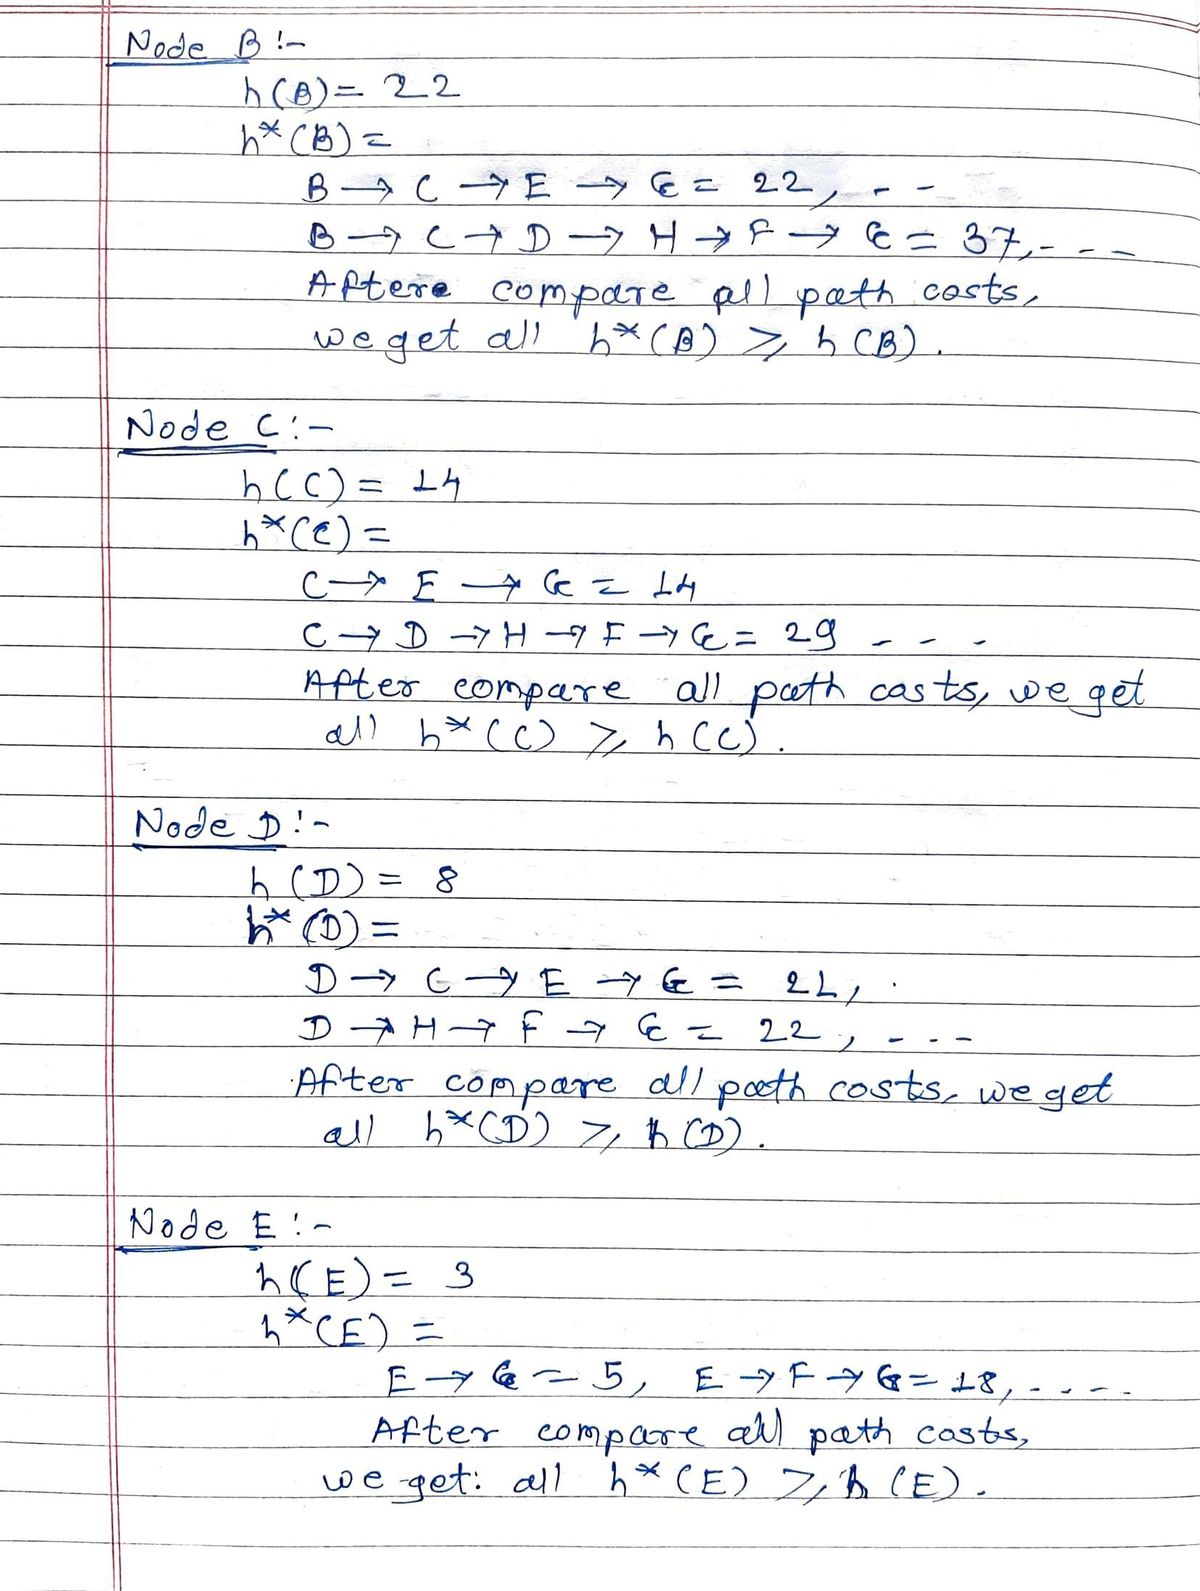 Node B :-
h(B) = 22
h*(B) =
B → C → E → G = 22, - -
B → C → D → H → F → G = 37, - - -
Aftere compare all path costs,
we get all h*(B) ⩾ h(B).
Node C :-
h(C) = 14
h*(C) =
C → E → G = 14
C → D → H → F → G = 29 - - -
After compare all path costs, we get
all h*(C) ⩾ h(C).
Node D :-
h(D) = 8
h*(D) =
D → C → E → G = 21,
D → H → F → G = 22, - - -
After compare all path costs, we get
all h*(D) ⩾ h(D).
Node E :-
h(E) = 3
h*(E) =
E → G = 5, E → F → G = 18, - - - -
After compare all path costs,
we get: all h*(E) ⩾ h(E).